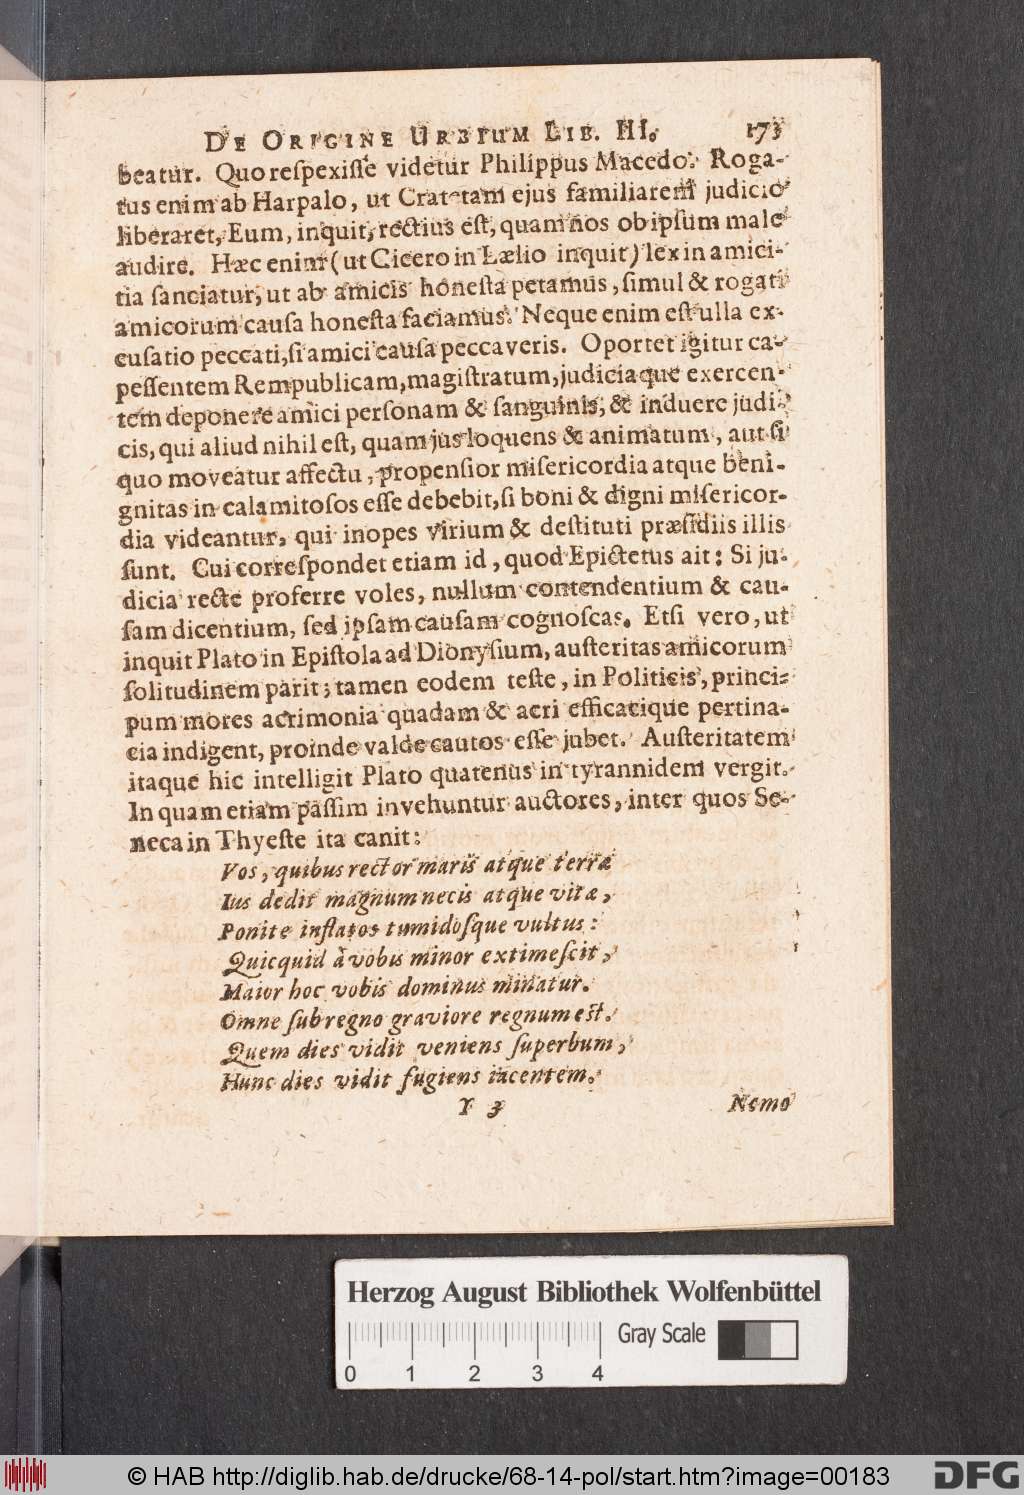 DE ORIGINE URBIUM LIB. III. 173
beatur. Quo reſpexiſſe videtur Philippus Macedo. Roga-
tus enim ab Harpalo, ut Cratetam ejus familiarem judicio
liberaret, Eum, inquit, rectius eſt, quam nos ob ipſum male
audire. Hæc enim (ut Cicero in Lælio inquit) lex in amici-
tia ſanciatur, ut ab amicis honeſta petamus, ſimul & rogati
amicorum cauſa honeſta faciamus. Neque enim eſt ulla ex-
cuſatio peccati, ſi amici cauſa peccaveris. Oportet igitur ca-
peſſentem Rempublicam, magiſtratum, judiciaque exercen-
tem deponere amici perſonam & ſanguinis, & induere judi-
cis, qui aliud nihil eſt, quam jus loquens & animatum, aut ſi
quo moveatur affectu, propenſior miſericordia atque beni-
gnitas in calamitoſos eſſe debebit, ſi boni & digni miſericor-
dia videantur, qui inopes virium & deſtituti præſidiis illis
ſunt. Cui correſpondet etiam id, quod Epictetus ait: Si ju-
dicia recte proferre voles, nullum contendentium & cau-
ſam dicentium, ſed ipſam cauſam cognoſcas. Etſi vero, ut
inquit Plato in Epiſtola ad Dionyſium, auſteritas amicorum
ſolitudinem parit; tamen eodem teſte, in Politicis, princi-
pum mores acrimonia quadam & acri efficacique pertina-
cia indigent, proinde valde cautos eſſe jubet. Auſteritatem
itaque hic intelligit Plato quatenus in tyrannidem vergit.
In quam etiam paſſim invehuntur auctores, inter quos Se-
neca in Thyeſte ita canit:
Vos, quibus rector maris atque terræ
Ius dedit magnum necis atque vitæ,
Ponite inflatos tumidoſque vultus:
Quicquid à vobis minor extimeſcit,
Maior hoc vobis dominus minatur.
Omne ſub regno graviore regnum eſt.
Quem dies vidit veniens ſuperbum,
Hunc dies vidit fugiens iacentem.
Y 3 Nemo
Herzog August Bibliothek Wolfenbüttel
Gray Scale
0 1 2 3 4
© HAB http://diglib.hab.de/drucke/68-14-pol/start.htm?image=00183
DFG